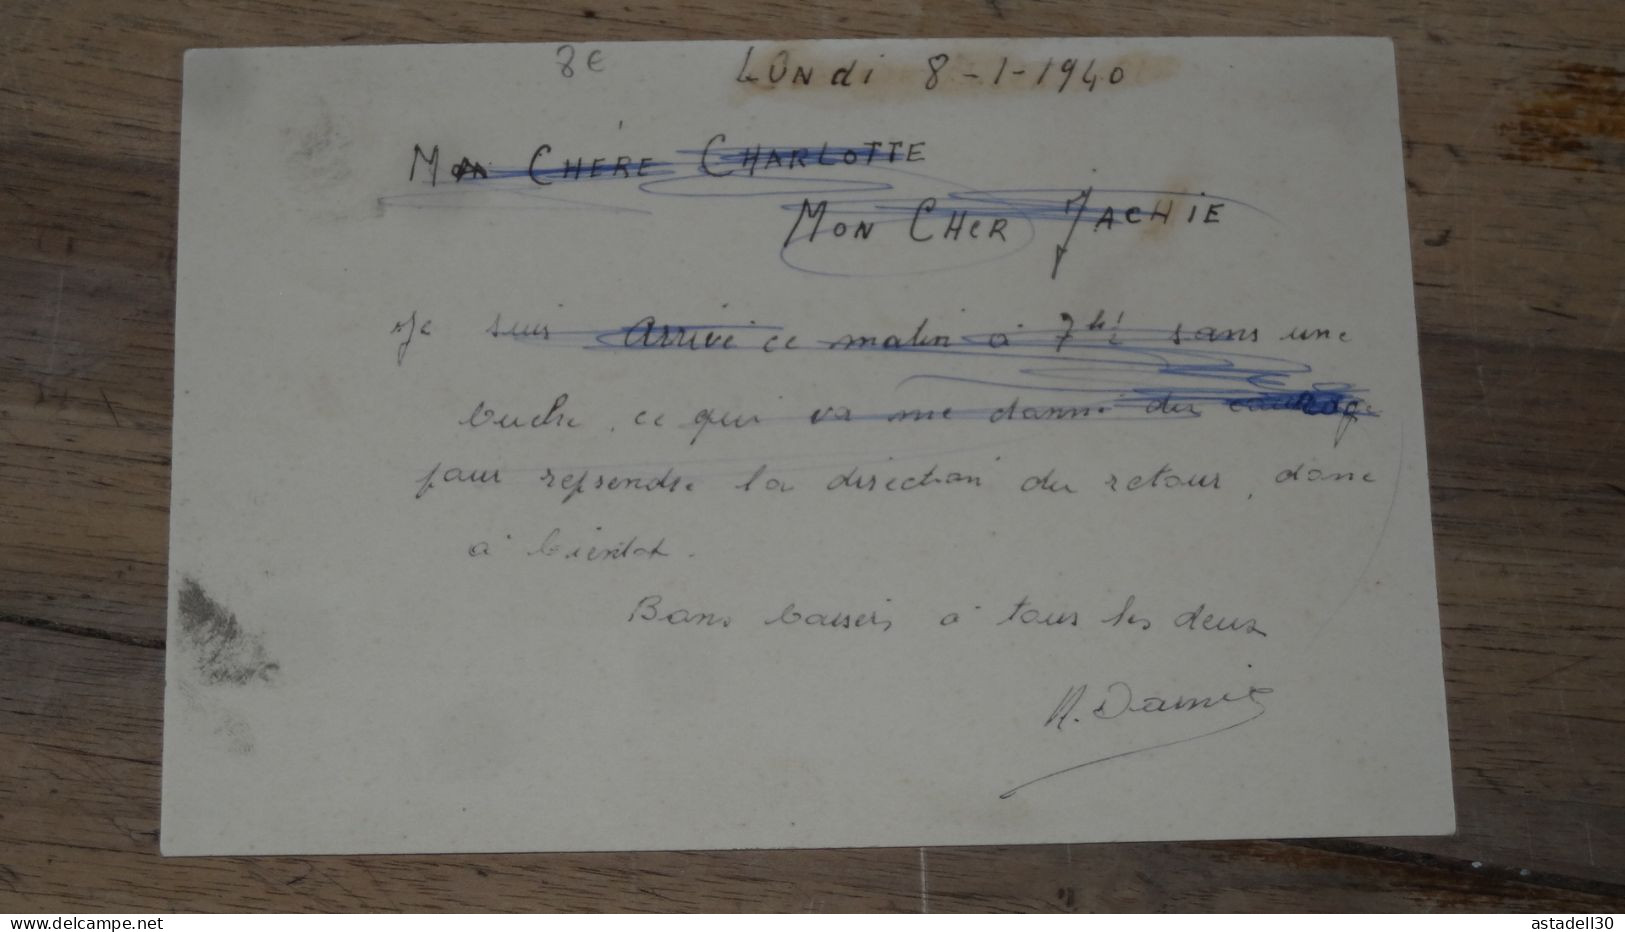 8€
Lundi 8-1-1940
Mon CHÉRE CHARLOTTE
MON CHER JACHIE
Je suis Arrivé ce matin à 7h¼ sans une
buche, ce qui va me donné du courage
pour reprendre la direction du retour, donc
à bientot.
Bons baisers à tous les deux
delcampe.net
astadell30